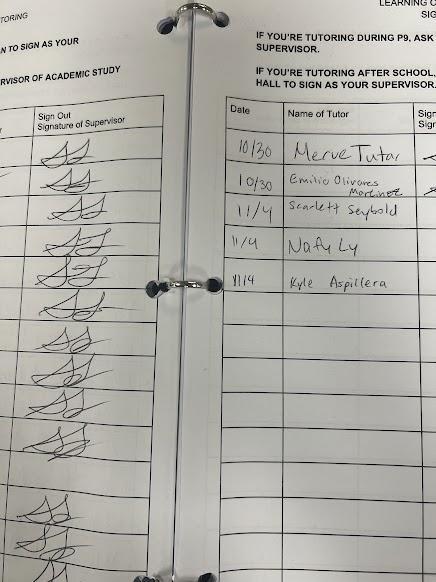 TORING
N TO SIGN AS YOUR
RVISOR OF ACADEMIC STUDY
Sign Out
Signature of Supervisor
LEARNING C
SIG
IF YOU'RE TUTORING DURING P9, ASK
SUPERVISOR.
IF YOU'RE TUTORING AFTER SCHOOL,
HALL TO SIGN AS YOUR SUPERVISOR.
Date Name of Tutor Sign
Sign
10/30 Merve Tutar
10/30 Emilio Olivares
Martinez
11/4 Scarlett Seybold
11/4 Nafy Ly
11/4 Kyle Aspillera